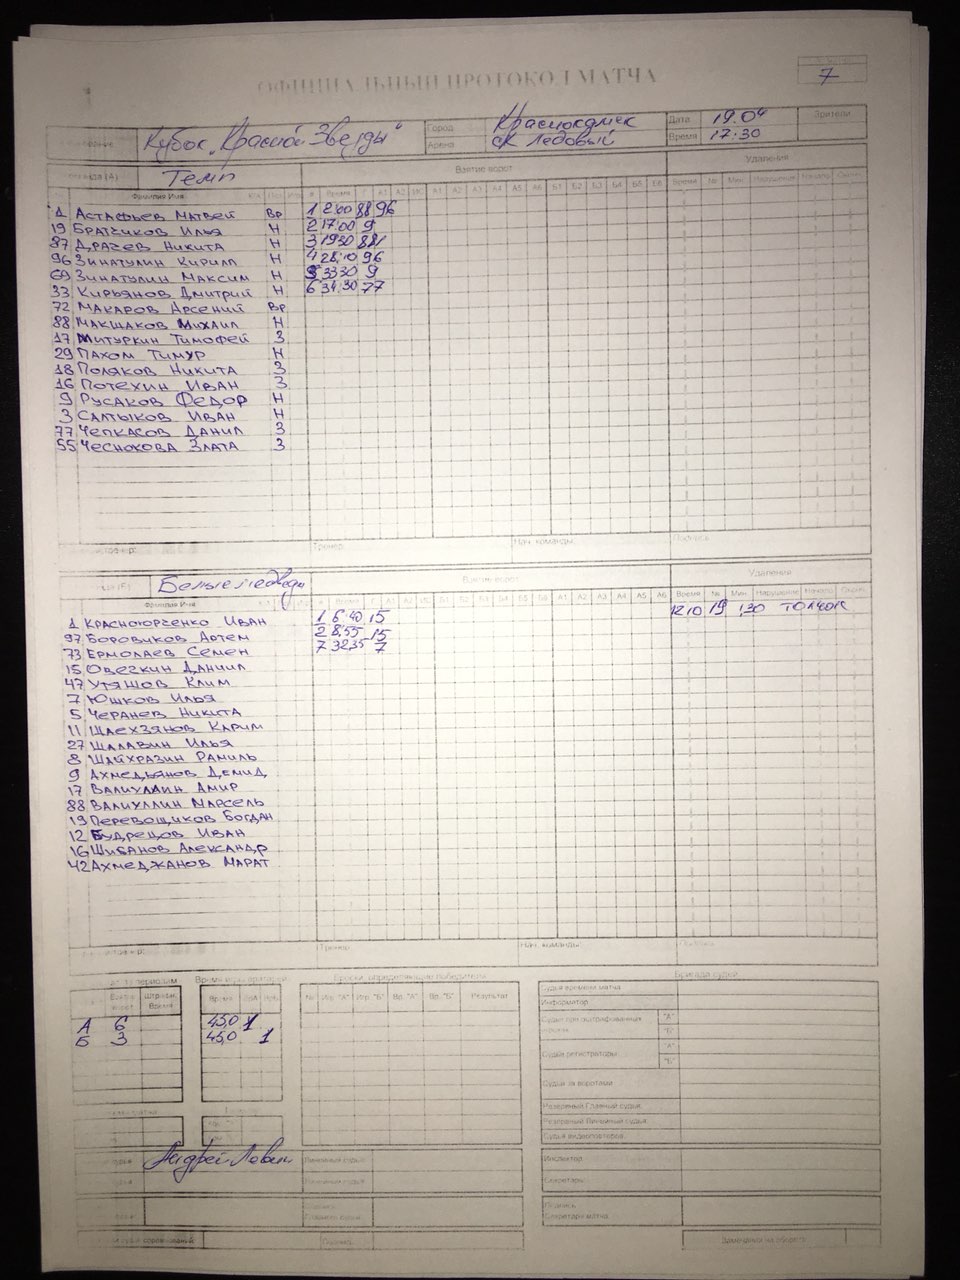 ОФИЦИАЛЬНЫЙ ПРОТОКОЛ МАТЧА
7
Кубок "Красной Звезды"
Город Краснокамск Дата 19.04 Зрители
Арена СК Ледовый Время 17:30
(А) Темп Взятие ворот Удаления
Фамилия Имя # Время Г А1 А2 ИС А1 А2 А3 А4 А5 А6 Б1 Б2 Б3 Б4 Б5 Б6 Время № Мин. Нарушение Начало Оконч.
1 Астафьев Матвей Вр 1 2:00 88 96
19 Братчиков Илья Н 2 17:00 9
87 Драчев Никита Н 3 19:30 88
96 Зинатулин Кирилл Н 4 28:10 96
69 Зинатулин Максим Н 5 33:30 9
33 Кирьянов Дмитрий Н 6 34:30 77
72 Макаров Арсений Вр
88 Макшаков Михаил Н
17 Митуркин Тимофей З
29 Пахом Тимур Н
18 Поляков Никита З
16 Потехин Иван З
9 Русаков Федор Н
3 Салтыков Иван Н
77 Чепкасов Данил З
55 Чеснокова Злата З
Тренер: Нач. команды: Подпись
(Б) Белые медведи Взятие ворот Удаления
Фамилия Имя
1 Красноюрченко Иван 1 6:40 15 12:10 19 1,30 толчок
97 Боровиков Артем 2 8:55 15
73 Ермолаев Семен 7 32:35 7
15 Овечкин Даниил
47 Утяшов Клим
7 Юшков Илья
5 Черанев Никита
11 Шаехзянов Карим
27 Шалавин Илья
8 Шайхразин Рамиль
9 Ахмедьянов Демид
17 Валиуллин Амир
88 Валиуллин Марсель
19 Перевощиков Богдан
12 Будрецов Иван
16 Шибанов Александр
42 Ахмеджанов Марат
Тренер: Нач. команды: Подпись
Броски, определяющие победителя Бригада судей
№ Игр. "А" Игр. "Б" Вр. "А" Вр. "Б" Результат
Судья времени матча
Информатор
А 6 45,0 1
Б 3 45,0 1
"А"
"Б"
Судьи регистраторы "А"
"Б"
Судьи за воротами
Резервный Главный судья
Резервный Линейный судья
Судья видеоповторов
Линейный судья Инспектор
Линейный судья Секретарь
Подпись Подпись
Главного судьи Секретаря матча
Подпись Замечания на обороте